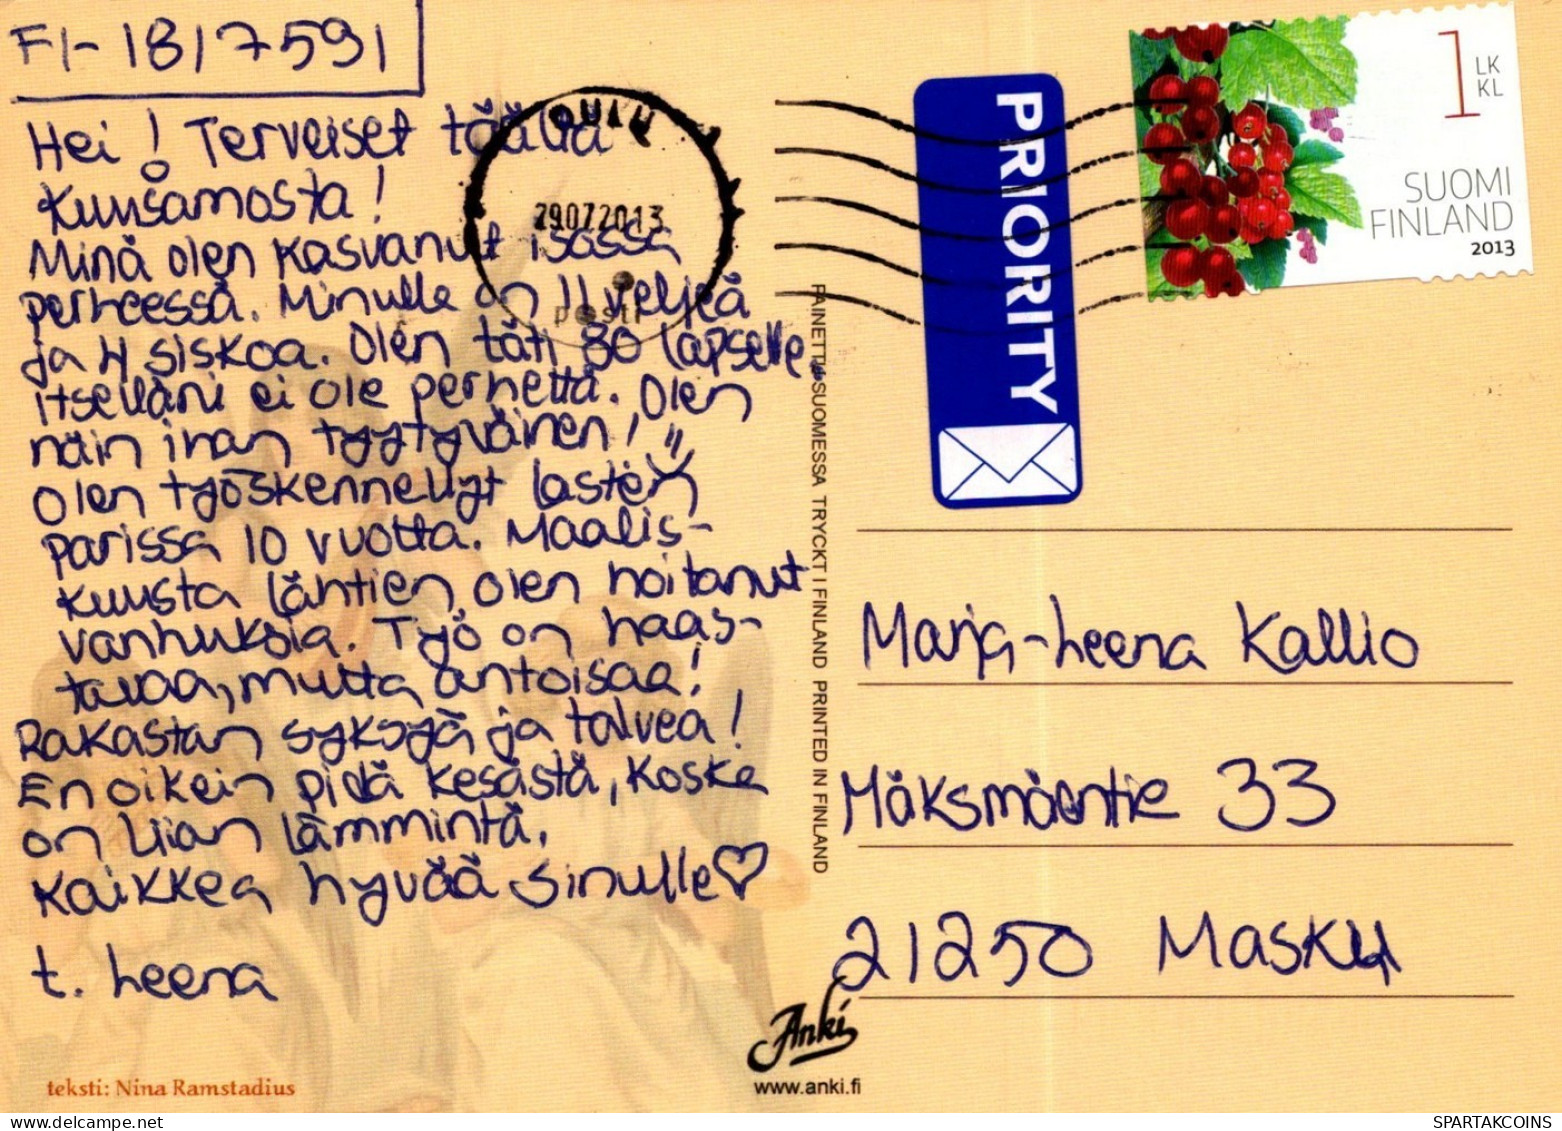 FI-1817591
Hei! Terveiset täältä
Kuusamosta!
Minä olen kasvanut isossa
perheessä. Minulla on 11 veljeä
ja 4 siskoa. Olen täti 80 lapselle,
itselläni ei ole perhettä. Olen
näin ihan tyytyväinen!
Olen työskennellyt lasten
parissa 10 vuotta. Maalis-
kuusta lähtien olen hoitanut
vanhuksia. Työ on haas-
tavaa, mutta antoisaa!
Rakastan syksyä ja talvea!
En oikein pidä kesästä, koska
on liian lämmintä.
Kaikkea hyvää sinulle ♡
t. Leena
teksti: Nina Ramstadius
OULU
29.07.2013
posti
PAINETTU SUOMESSA TRYCKT I FINLAND PRINTED IN FINLAND
Anki
www.anki.fi
PRIORITY
1 LK
KL
SUOMI
FINLAND
2013
Marja-Leena Kallio
Mäksmäentie 33
21250 Masku
SPARTAKCOINS